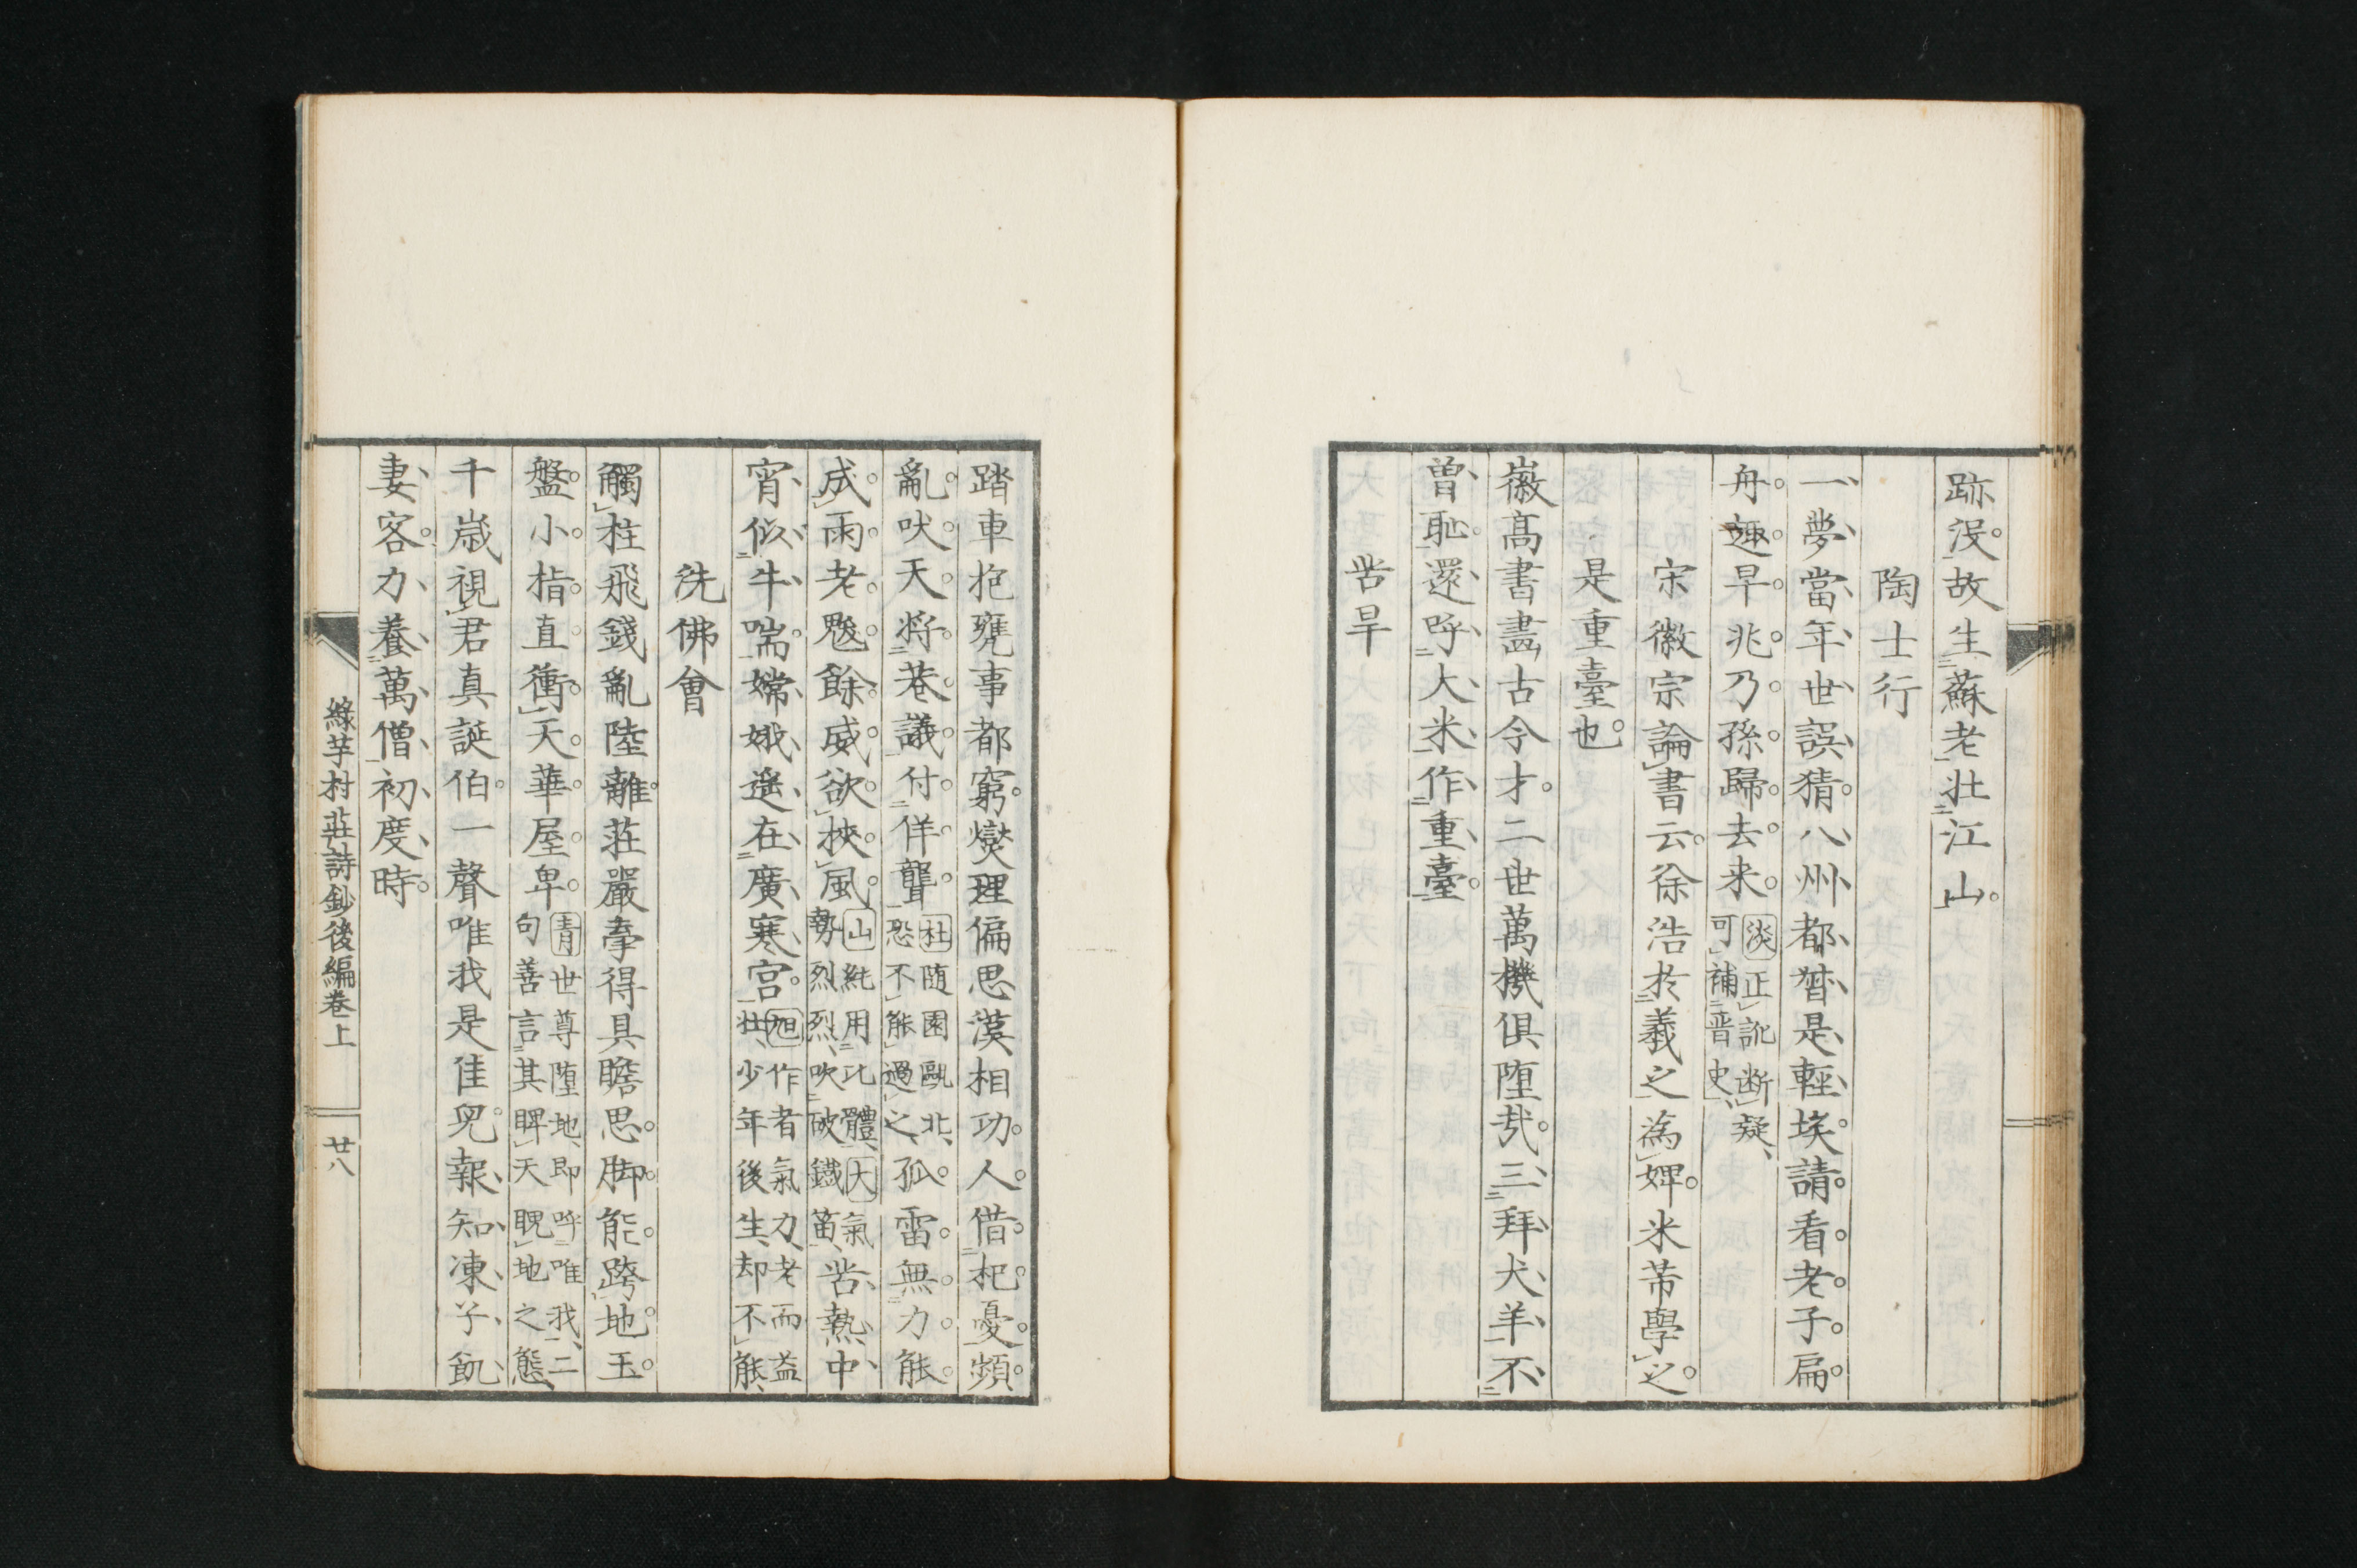 跡没故生蘇老壯江山
陶士行
一夢當年世誤猜八州都督是輕埃請看老子扁
舟趣早兆乃孫歸去来
淡正訛断疑
可補晋史
宋徽宗論書云徐浩於羲之為婢米芾學之
是重臺也
徽高書畵古今才二世萬機倶堕㢤三拜犬羊不
曽恥還呼大米作重臺
苦旱
踏車抱甕事都窮燮理偏思漢相功人借杞憂頻
亂吠天將巷議付佯聾
杜随園甌北
恐不能過之
孤雷無力能
成雨老魃餘威欲挾風
山純用比體
勢烈烈吹破鐵笛
大氣
苦熱中
宵似牛喘嫦娥遥在廣寒宮
旭作者氣力老而益
壮少年後生却不能
洗佛會
觸柱飛錢亂陸離荘嚴牽得具瞻思脚能跨地玉
盤小指直衝天華屋卑
青世尊堕地即呼唯我二
句善言其睥天睨地之態
千歳視君真誕伯一聲唯我是佳兒報知凍子飢
妻客力養萬僧初度時
緑芋村莊詩鈔後編巻上
廿八